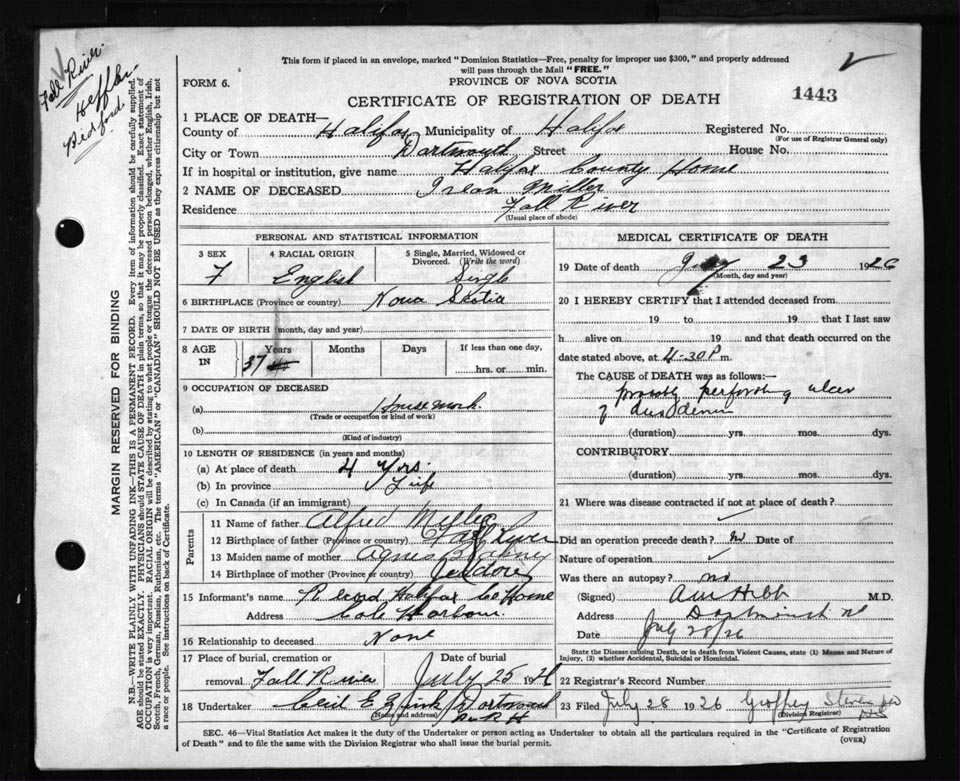 Fall River
Heffler
Bedford.
This form if placed in an envelope, marked "Dominion Statistics—Free, penalty for improper use $300," and properly addressed
will pass through the Mail "FREE."
FORM 6.
PROVINCE OF NOVA SCOTIA
CERTIFICATE OF REGISTRATION OF DEATH
1443
1 PLACE OF DEATH—
County of Halifax Municipality of Halifax Registered No.
(For use of Registrar General only)
City or Town Dartmouth Street House No.
If in hospital or institution, give name Halifax County Home
2 NAME OF DECEASED Miller
Residence Fall River
(Usual place of abode)
PERSONAL AND STATISTICAL INFORMATION
3 SEX F
4 RACIAL ORIGIN English
5 Single, Married, Widowed or Divorced. (Write the word) Single
6 BIRTHPLACE (Province or country) Nova Scotia
7 DATE OF BIRTH (month, day and year)
8 AGE IN Years 37 Months Days If less than one day, hrs. or min.
9 OCCUPATION OF DECEASED
(a) Housework.
(Trade or occupation or kind of work)
(b)
(Kind of industry)
10 LENGTH OF RESIDENCE (in years and months)
(a) At place of death 4 Yrs.
(b) In province Life
(c) In Canada (if an immigrant)
Parents
11 Name of father Alfred Miller
12 Birthplace of father (Province or country) Fall River
13 Maiden name of mother Agnes Blakney
14 Birthplace of mother (Province or country) Jeddore
15 Informant's name Record Halifax Co Home
Address Cole Harbour.
16 Relationship to deceased None
17 Place of burial, cremation or removal Fall River
Date of burial July 25 1926
18 Undertaker Cecil E Zink Dartmouth
(Name and address)
MEDICAL CERTIFICATE OF DEATH
19 Date of death July 23 1926
(Month, day and year)
20 I HEREBY CERTIFY that I attended deceased from
19 to 19 that I last saw
h alive on 19 and that death occurred on the
date stated above, at 4-30 P m.
The CAUSE of DEATH was as follows:—
probably perforating ulcer
of duodenum
(duration) yrs. mos. dys.
CONTRIBUTORY
(duration) yrs. mos. dys.
21 Where was disease contracted if not at place of death?
Did an operation precede death? no Date of
Nature of operation
Was there an autopsy? no
(Signed) M.D.
Address Dartmouth NS
Date July 28/26
State the Disease causing Death, or in death from Violent Causes, state (1) Means and Nature of
Injury, (2) whether Accidental, Suicidal or Homicidal.
22 Registrar's Record Number
23 Filed July 28 1926 Geoffrey Stevens
(Division Registrar)
SEC. 46—Vital Statistics Act makes it the duty of the Undertaker or person acting as Undertaker to obtain all the particulars required in the "Certificate of Registration
of Death" and to file the same with the Division Registrar who shall issue the burial permit.
(OVER)
MARGIN RESERVED FOR BINDING
N.B.—WRITE PLAINLY WITH UNFADING INK—THIS IS A PERMANENT RECORD. Every item of information should be carefully supplied.
AGE should be stated EXACTLY. PHYSICIANS should STATE CAUSE OF DEATH in plain terms, so that it may be properly classified. Exact statement of
OCCUPATION is very important. RACIAL ORIGIN will be described by stating to what people or tongue the deceased person belonged, whether English, Irish,
Scotch, French, German, Russian, Ruthenian, etc. The terms "AMERICAN" or "CANADIAN" SHOULD NOT BE USED as they express citizenship but not
a race or people. See instructions on back of Certificate.